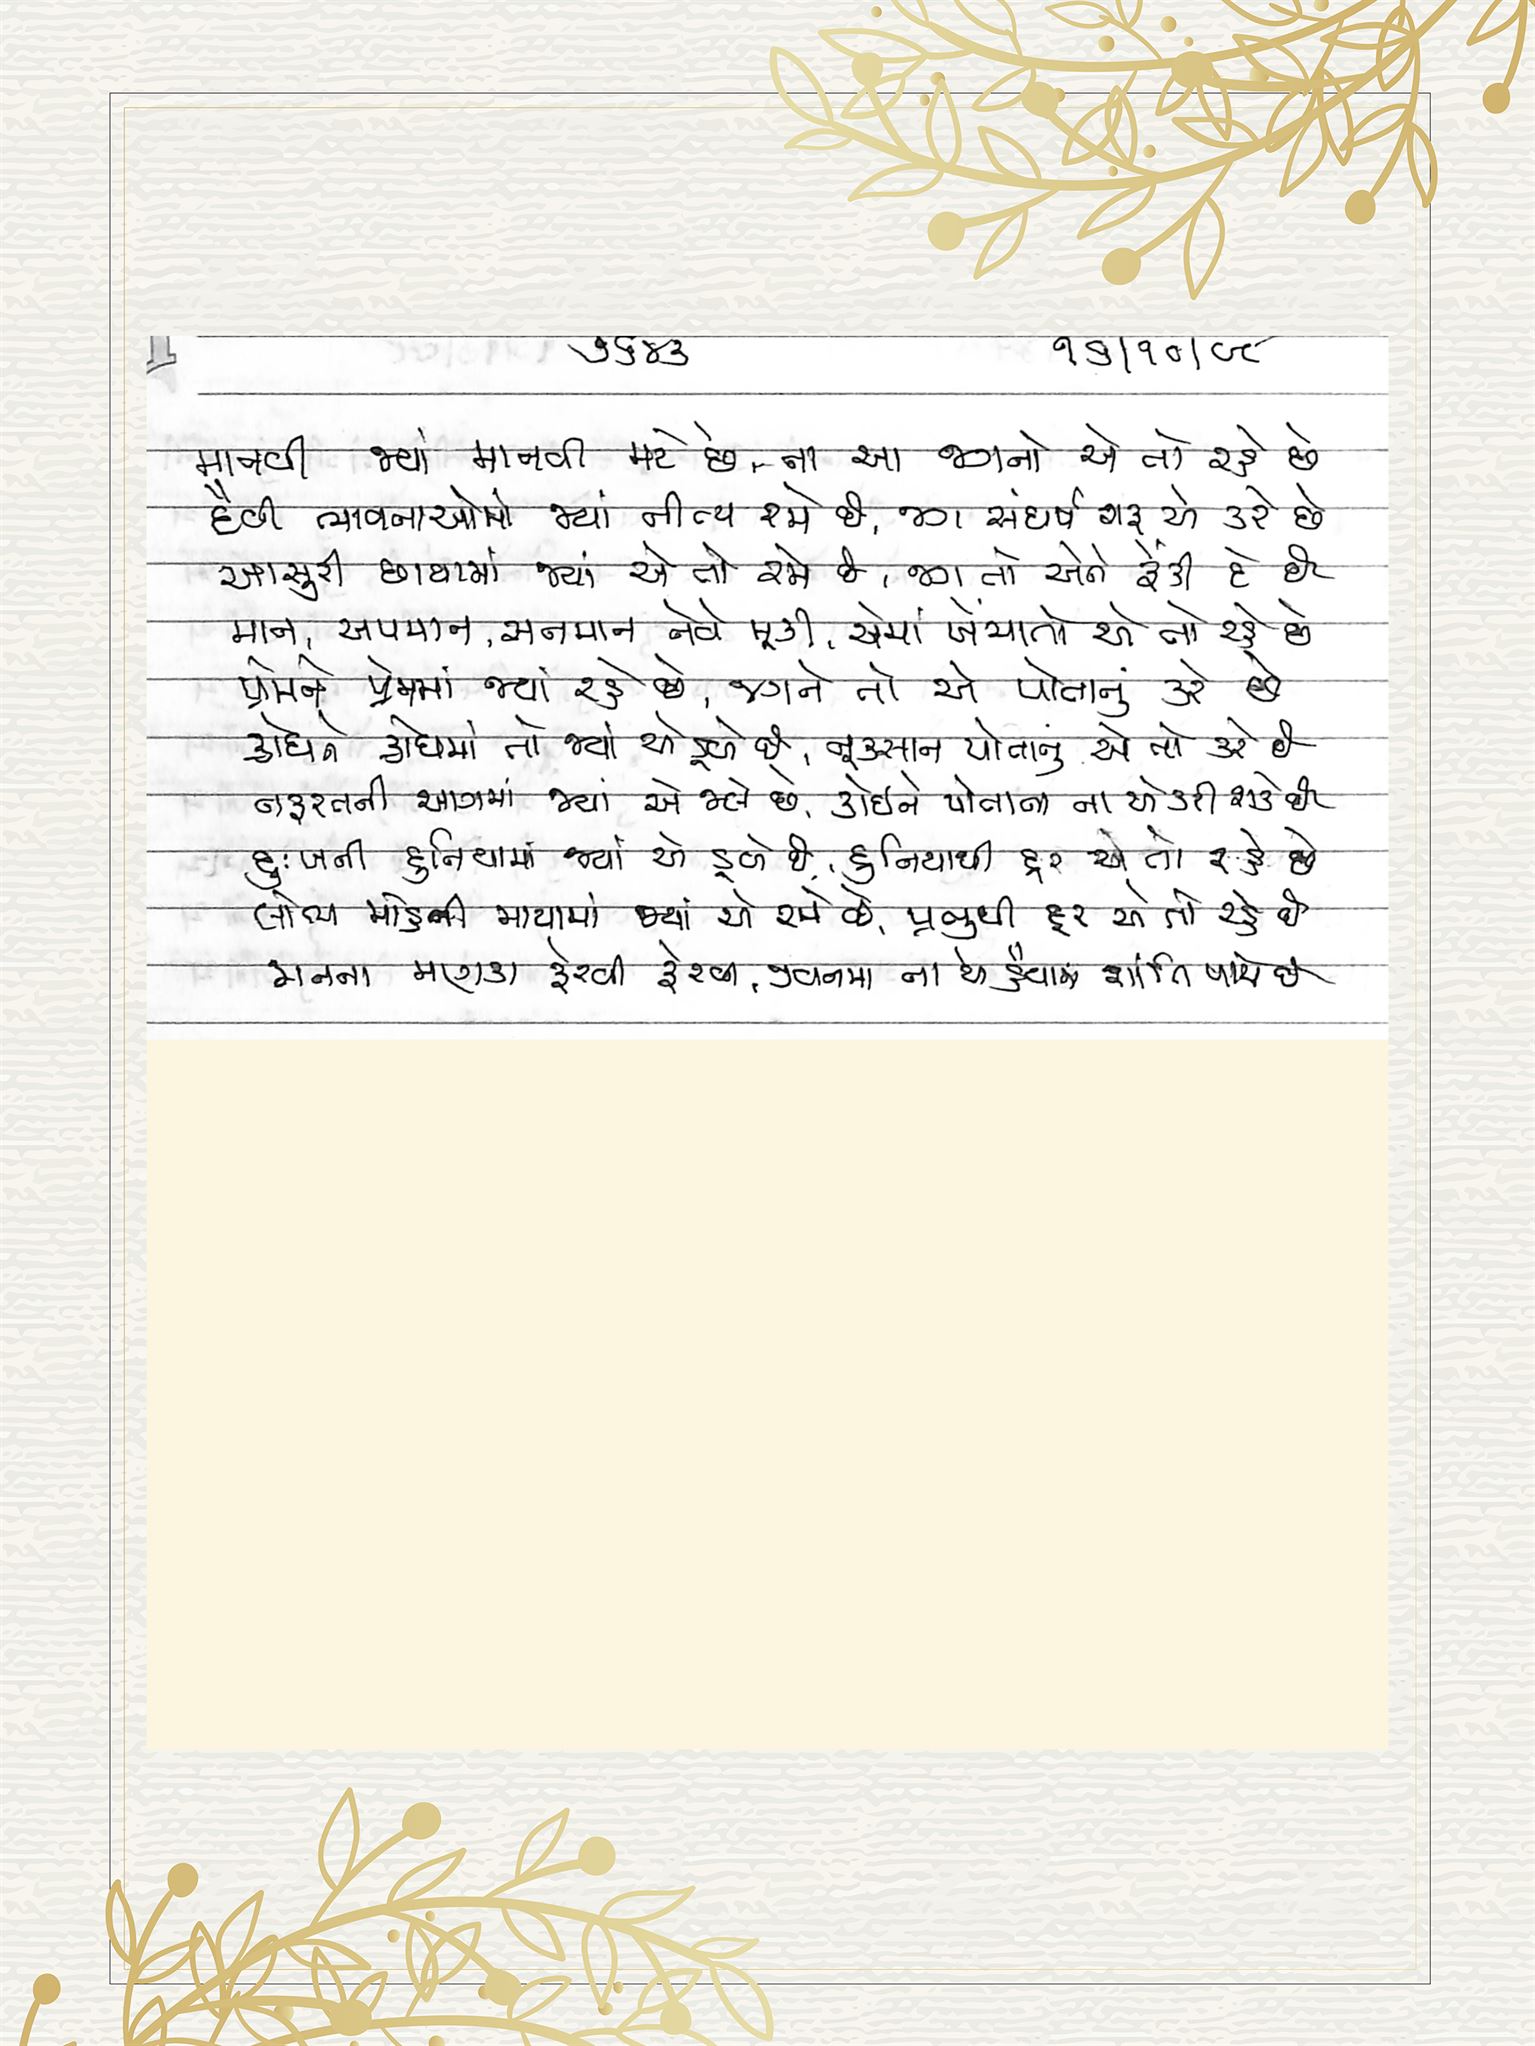 ૭૬૪૩ ૧૬/૧૦/૯૮
માનવી જ્યાં માનવી મટે છે, ના આ જગનો એ તો રહે છે
દૈવી ભાવનાઓમાં જ્યાં નીત્ય રમે છે, જગ સંઘર્ષ શરૂ એ કરે છે
આસુરી છાયામાં જ્યાં એ તો રમે છે, જગ તો એને ફેંકી દે છે
માન, અપમાન, સનમાન નેવે મૂકી, એમાં ખેંચાતો એ તો રહે છે
પ્રેમને પ્રેમમાં જ્યાં રહે છે, જગને તો એ પોતાનું કરે છે
ક્રોધને ક્રોધમાં તો જ્યાં એ ડૂબે છે, નૂકસાન પોતાનું એ તો કરે છે
નફરતની આગમાં જ્યાં એ જલે છે, કોઈને પોતાના ના એ કરી શકે છે
દુઃખની દુનિયામાં જ્યાં એ ડૂબે છે, દુનિયાથી દૂર એ તો રહે છે
લોભ મોહની માયામાં જ્યાં એ રમે છે, પ્રભુથી દૂર એ તો રહે છે
મનના મણકા ફેરવી ફેરવી, જીવનમાં ના એ હૈયામાં શાંતિ પામે છે